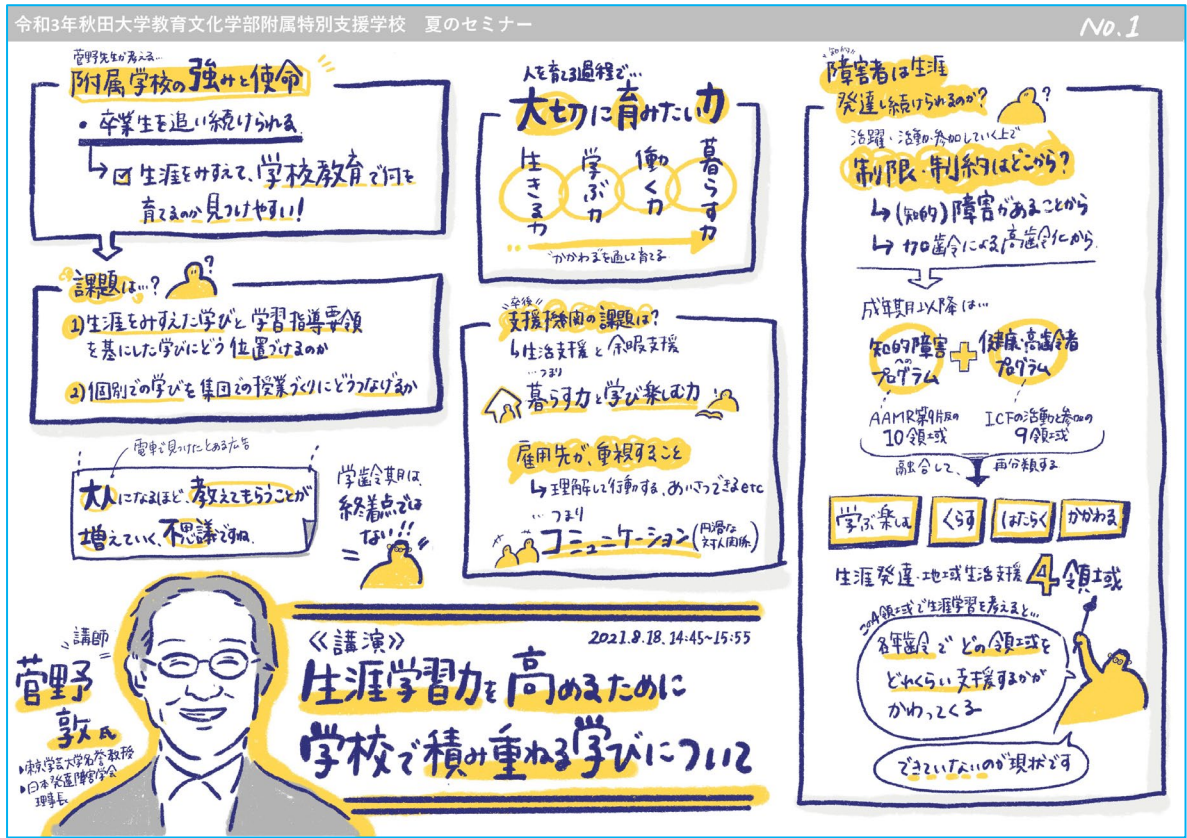 令和3年秋田大学教育文化学部附属特別支援学校 夏のセミナー
No.1
菅野先生が考える…
附属学校の強みと使命
・卒業生を追い続けられる
↳☑生涯をみすえて、学校教育で何を
育てるのか見つけやすい!
課題は…?
?
1)生涯をみすえた学びと学習指導要領
を基にした学びにどう位置づけるのか
2)個別での学びを集団での授業づくりにどうつなげるか
電車で見つけたとある広告
大人になるほど、教えてもらうことが
増えていく、不思議ですね。
学齢期は、
終着点では
ない!!
人を育てる過程で…
大切に育みたい力
生きる力
学ぶ力
働く力
暮らす力
"かかわる"を通して育てる
"卒後"
支援機関の課題は?
↳生活支援と余暇支援
…つまり
暮らす力と学び楽しむ力
雇用先が、重視すること
↳理解して行動する、あいさつできるetc
…つまり
コミュニケーション(円滑な
対人関係)
"知的"
障害者は生涯
発達し続けられるのか?
?
活躍・活動・参加していく上で
制限・制約はどこから?
↳(知的)障害があることから
↳加齢による高齢化から
成年期以降は…
知的障害
への
プログラム
+
健康・高齢者
プログラム
AAMR第9版の
10領域
ICFの活動と参加の
9領域
融合して、再分類する
学ぶ・楽しむ
くらす
はたらく
かかわる
生涯発達・地域生活支援4領域
この4領域で生涯学習を考えると…
各年齢でどの領域を
どれくらい支援するかが
かわってくる
できていないのが現状です
"講師"
菅野
敦氏
▸東京学芸大学名誉教授
▸日本発達障害学会
理事長
≪講演≫
2021.8.18. 14:45~15:55
生涯学習力を高めるために
学校で積み重ねる学びについて